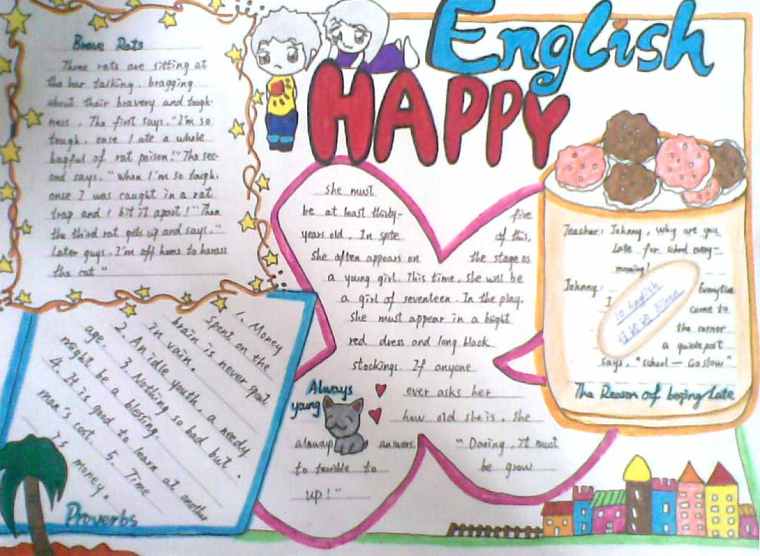 English
HAPPY
Brave Rats
Three rats are sitting at
the bar talking, bragging
about their bravery and tough-
ness. The first says, "I'm so
tough, once I ate a whole
bagful of rat poison!" The sec-
ond says, "When I'm so tough,
once I was caught in a rat
trap and I bit it apart!" Then
the third rat gets up and says, "
Later guys, I'm off home to harass
the cat"
she must
be at least thirty- five
years old. In spite of this,
she often appears on the stage as
a young girl. This time, she will be
a girl of seventeen. In the play,
she must appear in a bright
red dress and long black
stockings. If anyone
ever asks her
how old she is, she
always answers, "Daring, it must
be to terrible to be grow
up!"
Always
young
Teacher: Johnny, Why are you
late for school every-
morning?
Johnny: Everytime
I come to
the corner
a guidepost
says, "school — Go slow"
The Reason of being Late
1. Money
spent on the
brain is never spent
in vain.
2. An idle youth, a needy
age. 3. Nothing so bad but
might be a blessing.
4. It is good to learn at another
man's cost. 5. Time
is money.
Proverbs